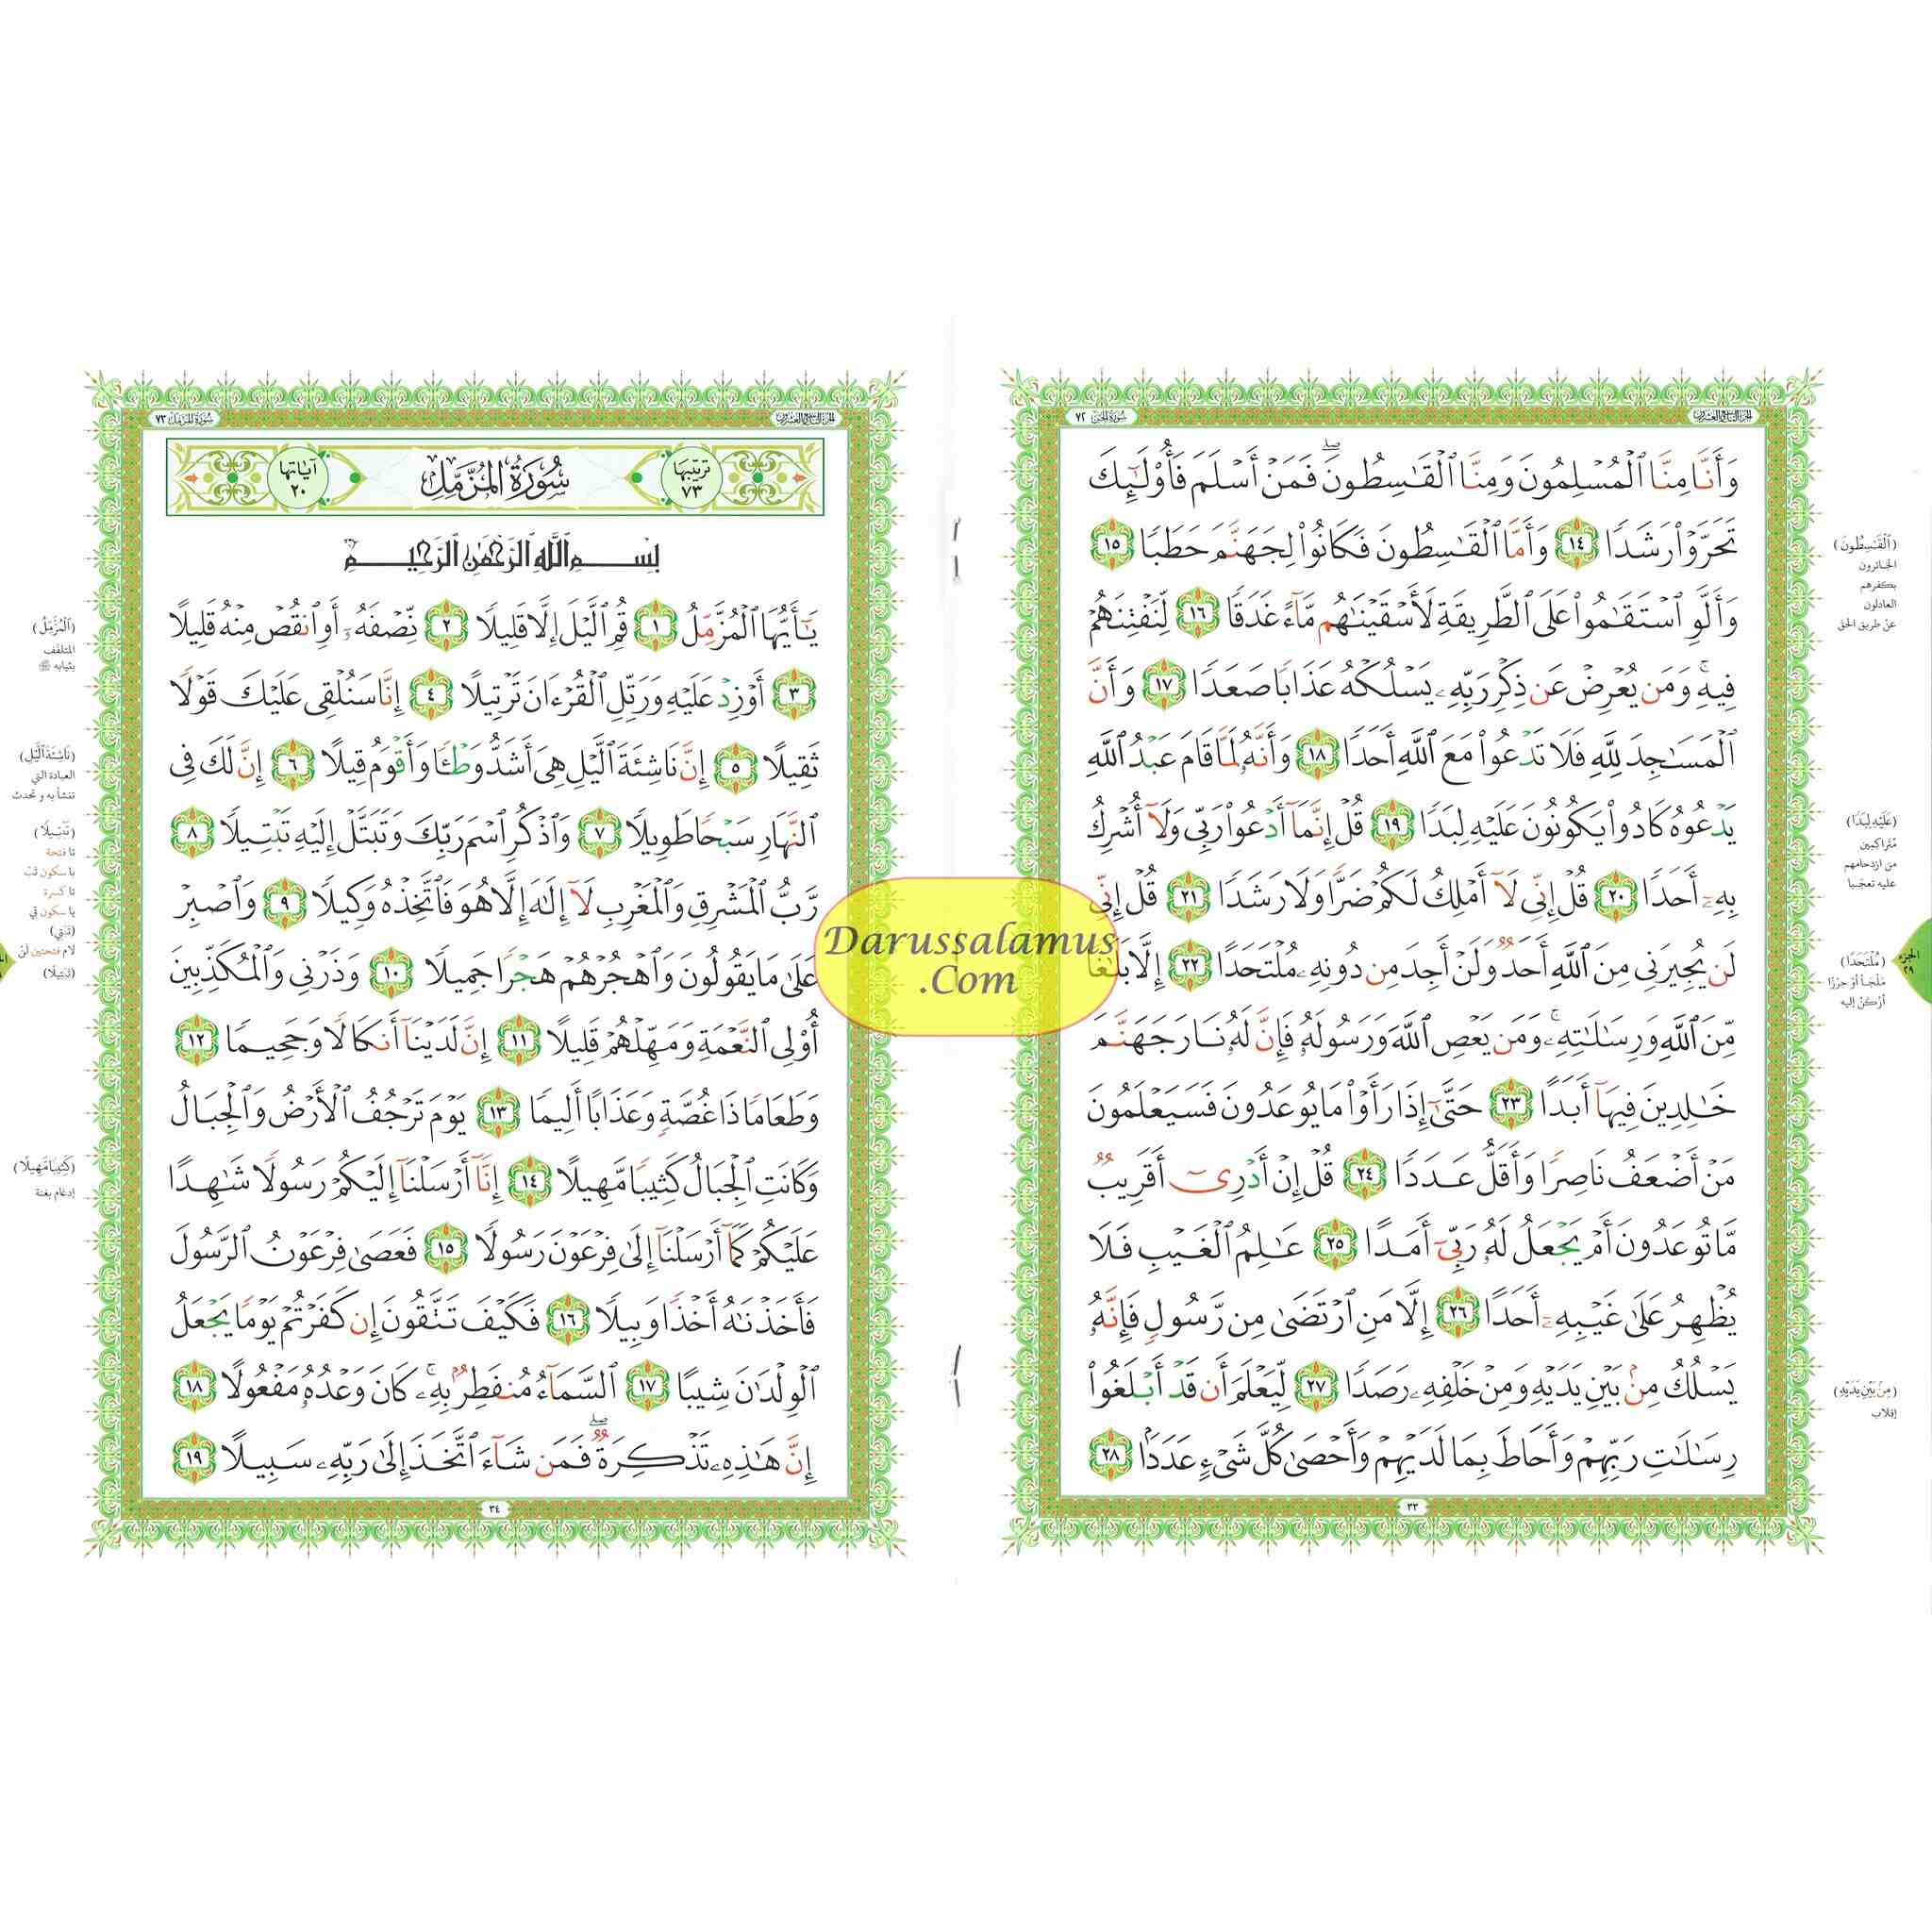 الجزء التاسع والعشرون
سورة الجن ٧٢
وَأَنَّا مِنَّا ٱلْمُسْلِمُونَ وَمِنَّا ٱلْقَٰسِطُونَ ۖ فَمَنْ أَسْلَمَ فَأُو۟لَٰٓئِكَ
تَحَرَّوْا۟ رَشَدًا ١٤ وَأَمَّا ٱلْقَٰسِطُونَ فَكَانُوا۟ لِجَهَنَّمَ حَطَبًا ١٥
وَأَلَّوِ ٱسْتَقَٰمُوا۟ عَلَى ٱلطَّرِيقَةِ لَأَسْقَيْنَٰهُم مَّآءً غَدَقًا ١٦ لِّنَفْتِنَهُمْ
فِيهِ ۚ وَمَن يُعْرِضْ عَن ذِكْرِ رَبِّهِۦ يَسْلُكْهُ عَذَابًا صَعَدًا ١٧ وَأَنَّ
ٱلْمَسَٰجِدَ لِلَّهِ فَلَا تَدْعُوا۟ مَعَ ٱللَّهِ أَحَدًا ١٨ وَأَنَّهُۥ لَمَّا قَامَ عَبْدُ ٱللَّهِ
يَدْعُوهُ كَادُوا۟ يَكُونُونَ عَلَيْهِ لِبَدًا ١٩ قُلْ إِنَّمَآ أَدْعُوا۟ رَبِّى وَلَآ أُشْرِكُ
بِهِۦٓ أَحَدًا ٢٠ قُلْ إِنِّى لَآ أَمْلِكُ لَكُمْ ضَرًّا وَلَا رَشَدًا ٢١ قُلْ إِنِّى
لَن يُجِيرَنِى مِنَ ٱللَّهِ أَحَدٌ وَلَنْ أَجِدَ مِن دُونِهِۦ مُلْتَحَدًا ٢٢ إِلَّا بَلَٰغًا
مِّنَ ٱللَّهِ وَرِسَٰلَٰتِهِۦ ۚ وَمَن يَعْصِ ٱللَّهَ وَرَسُولَهُۥ فَإِنَّ لَهُۥ نَارَ جَهَنَّمَ
خَٰلِدِينَ فِيهَآ أَبَدًا ٢٣ حَتَّىٰٓ إِذَا رَأَوْا۟ مَا يُوعَدُونَ فَسَيَعْلَمُونَ
مَنْ أَضْعَفُ نَاصِرًا وَأَقَلُّ عَدَدًا ٢٤ قُلْ إِنْ أَدْرِىٓ أَقَرِيبٌ
مَّا تُوعَدُونَ أَمْ يَجْعَلُ لَهُۥ رَبِّىٓ أَمَدًا ٢٥ عَٰلِمُ ٱلْغَيْبِ فَلَا
يُظْهِرُ عَلَىٰ غَيْبِهِۦٓ أَحَدًا ٢٦ إِلَّا مَنِ ٱرْتَضَىٰ مِن رَّسُولٍ فَإِنَّهُۥ
يَسْلُكُ مِنۢ بَيْنِ يَدَيْهِ وَمِنْ خَلْفِهِۦ رَصَدًا ٢٧ لِّيَعْلَمَ أَن قَدْ أَبْلَغُوا۟
رِسَٰلَٰتِ رَبِّهِمْ وَأَحَاطَ بِمَا لَدَيْهِمْ وَأَحْصَىٰ كُلَّ شَىْءٍ عَدَدًۢا ٢٨
٣٣
(ٱلْقَٰسِطُونَ)
الجائرون
بكفرهم
العادلون
عن طريق الحق
(عَلَيْهِ لِبَدًا)
مُتَراكِمِين
من ازدحامهم
عليه تعجّبا
(مُلْتَحَدًا)
مَلْجَأ أوْ حِرْزًا
أرْكنُ إليه
(مِنۢ بَيْنِ يَدَيْهِ)
إقلاب
الجزء
٢٩
الجزء التاسع والعشرون
سورة المزمل ٧٣
ترتيبها ٧٣
سُورَةُ الْمُزَّمِّلِ
آياتها ٢٠
بِسْمِ ٱللَّهِ ٱلرَّحْمَٰنِ ٱلرَّحِيمِ
يَٰٓأَيُّهَا ٱلْمُزَّمِّلُ ١ قُمِ ٱلَّيْلَ إِلَّا قَلِيلًا ٢ نِّصْفَهُۥٓ أَوِ ٱنقُصْ مِنْهُ قَلِيلًا
٣ أَوْ زِدْ عَلَيْهِ وَرَتِّلِ ٱلْقُرْءَانَ تَرْتِيلًا ٤ إِنَّا سَنُلْقِى عَلَيْكَ قَوْلًا
ثَقِيلًا ٥ إِنَّ نَاشِئَةَ ٱلَّيْلِ هِىَ أَشَدُّ وَطْـًٔا وَأَقْوَمُ قِيلًا ٦ إِنَّ لَكَ فِى
ٱلنَّهَارِ سَبْحًا طَوِيلًا ٧ وَٱذْكُرِ ٱسْمَ رَبِّكَ وَتَبَتَّلْ إِلَيْهِ تَبْتِيلًا ٨
رَّبُّ ٱلْمَشْرِقِ وَٱلْمَغْرِبِ لَآ إِلَٰهَ إِلَّا هُوَ فَٱتَّخِذْهُ وَكِيلًا ٩ وَٱصْبِرْ
عَلَىٰ مَا يَقُولُونَ وَٱهْجُرْهُمْ هَجْرًا جَمِيلًا ١٠ وَذَرْنِى وَٱلْمُكَذِّبِينَ
أُو۟لِى ٱلنَّعْمَةِ وَمَهِّلْهُمْ قَلِيلًا ١١ إِنَّ لَدَيْنَآ أَنكَالًا وَجَحِيمًا ١٢
وَطَعَامًا ذَا غُصَّةٍ وَعَذَابًا أَلِيمًا ١٣ يَوْمَ تَرْجُفُ ٱلْأَرْضُ وَٱلْجِبَالُ
وَكَانَتِ ٱلْجِبَالُ كَثِيبًا مَّهِيلًا ١٤ إِنَّآ أَرْسَلْنَآ إِلَيْكُمْ رَسُولًا شَٰهِدًا
عَلَيْكُمْ كَمَآ أَرْسَلْنَآ إِلَىٰ فِرْعَوْنَ رَسُولًا ١٥ فَعَصَىٰ فِرْعَوْنُ ٱلرَّسُولَ
فَأَخَذْنَٰهُ أَخْذًا وَبِيلًا ١٦ فَكَيْفَ تَتَّقُونَ إِن كَفَرْتُمْ يَوْمًا يَجْعَلُ
ٱلْوِلْدَٰنَ شِيبًا ١٧ ٱلسَّمَآءُ مُنفَطِرٌۢ بِهِۦ ۚ كَانَ وَعْدُهُۥ مَفْعُولًا ١٨
إِنَّ هَٰذِهِۦ تَذْكِرَةٌ ۖ فَمَن شَآءَ ٱتَّخَذَ إِلَىٰ رَبِّهِۦ سَبِيلًا ١٩
٣٤
(ٱلْمُزَّمِّلُ)
المتلفّف
بثيابه ﷺ
(نَاشِئَةَ ٱلَّيْلِ)
العبادة التي
تنشأ به و تحدث
(تَبْتِيلًا)
تا فتحة
با سكون تَبْ
تا كسرة
يا سكون تِي
(تَبْتِي)
لام فتحتين لًا
(تَبْتِيلًا)
(كَثِيبًا مَّهِيلًا)
إدغام بغنة
Darussalamus
.Com